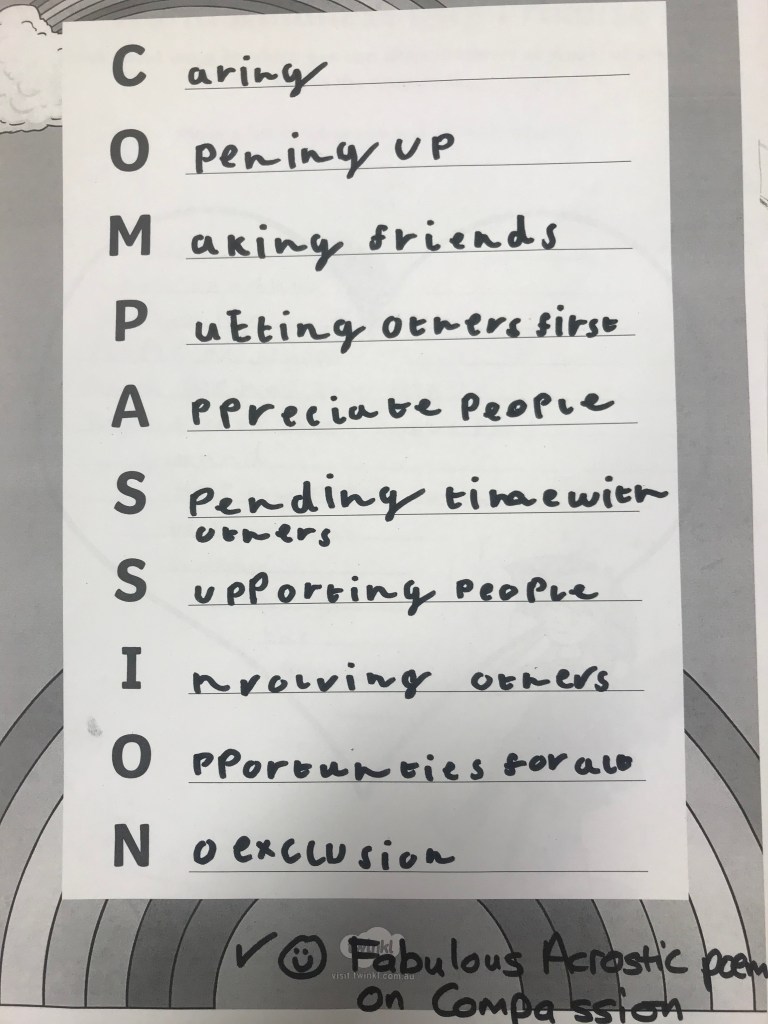 C aring
O pening up
M aking friends
P utting others first
A ppreciate people
S pending time with
others
S upporting people
I nvolving others
O pportunties for all
N o exclusion
twinkl
visit twinkl.com.au
✓ ☺ Fabulous Acrostic poem
on Compassion